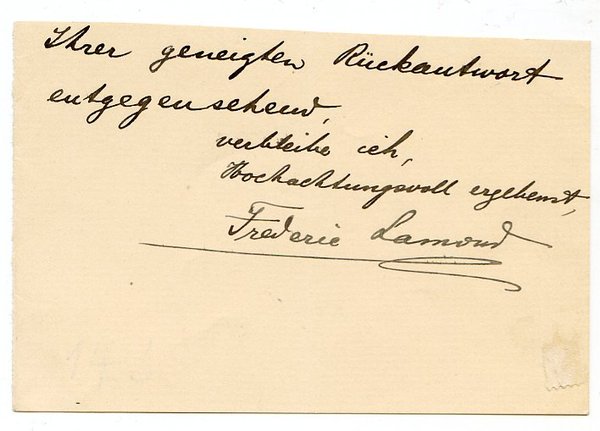 Ihrer geneigten Rückantwort
entgegensehend,
verbleibe ich,
Hochachtungsvoll ergebenst,
Frederic Lamond